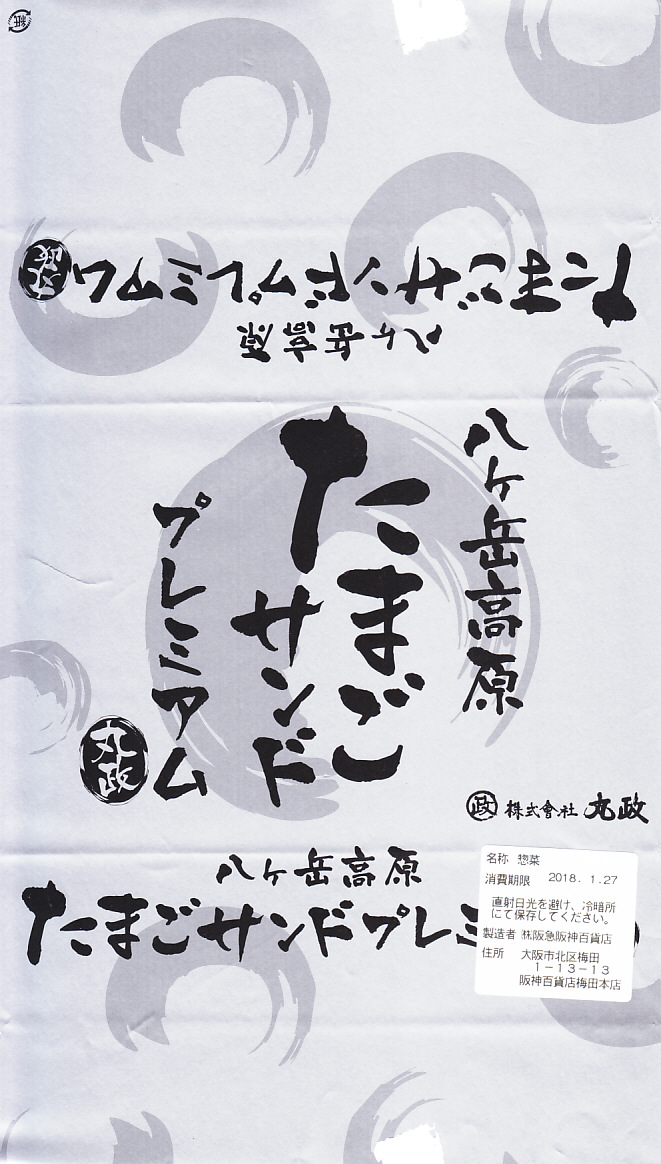 紙
たまごサンドプレミアム
丸政
八ヶ岳高原
八ヶ岳高原
たまご
サンド
プレミアム
丸政
政 株式會社 丸政
八ヶ岳高原
たまごサンドプレミ
名称 惣菜
消費期限 2018. 1.27
直射日光を避け、冷暗所
にて保存してください。
製造者 ㈱阪急阪神百貨店
住所 大阪市北区梅田
1-13-13
阪神百貨店梅田本店